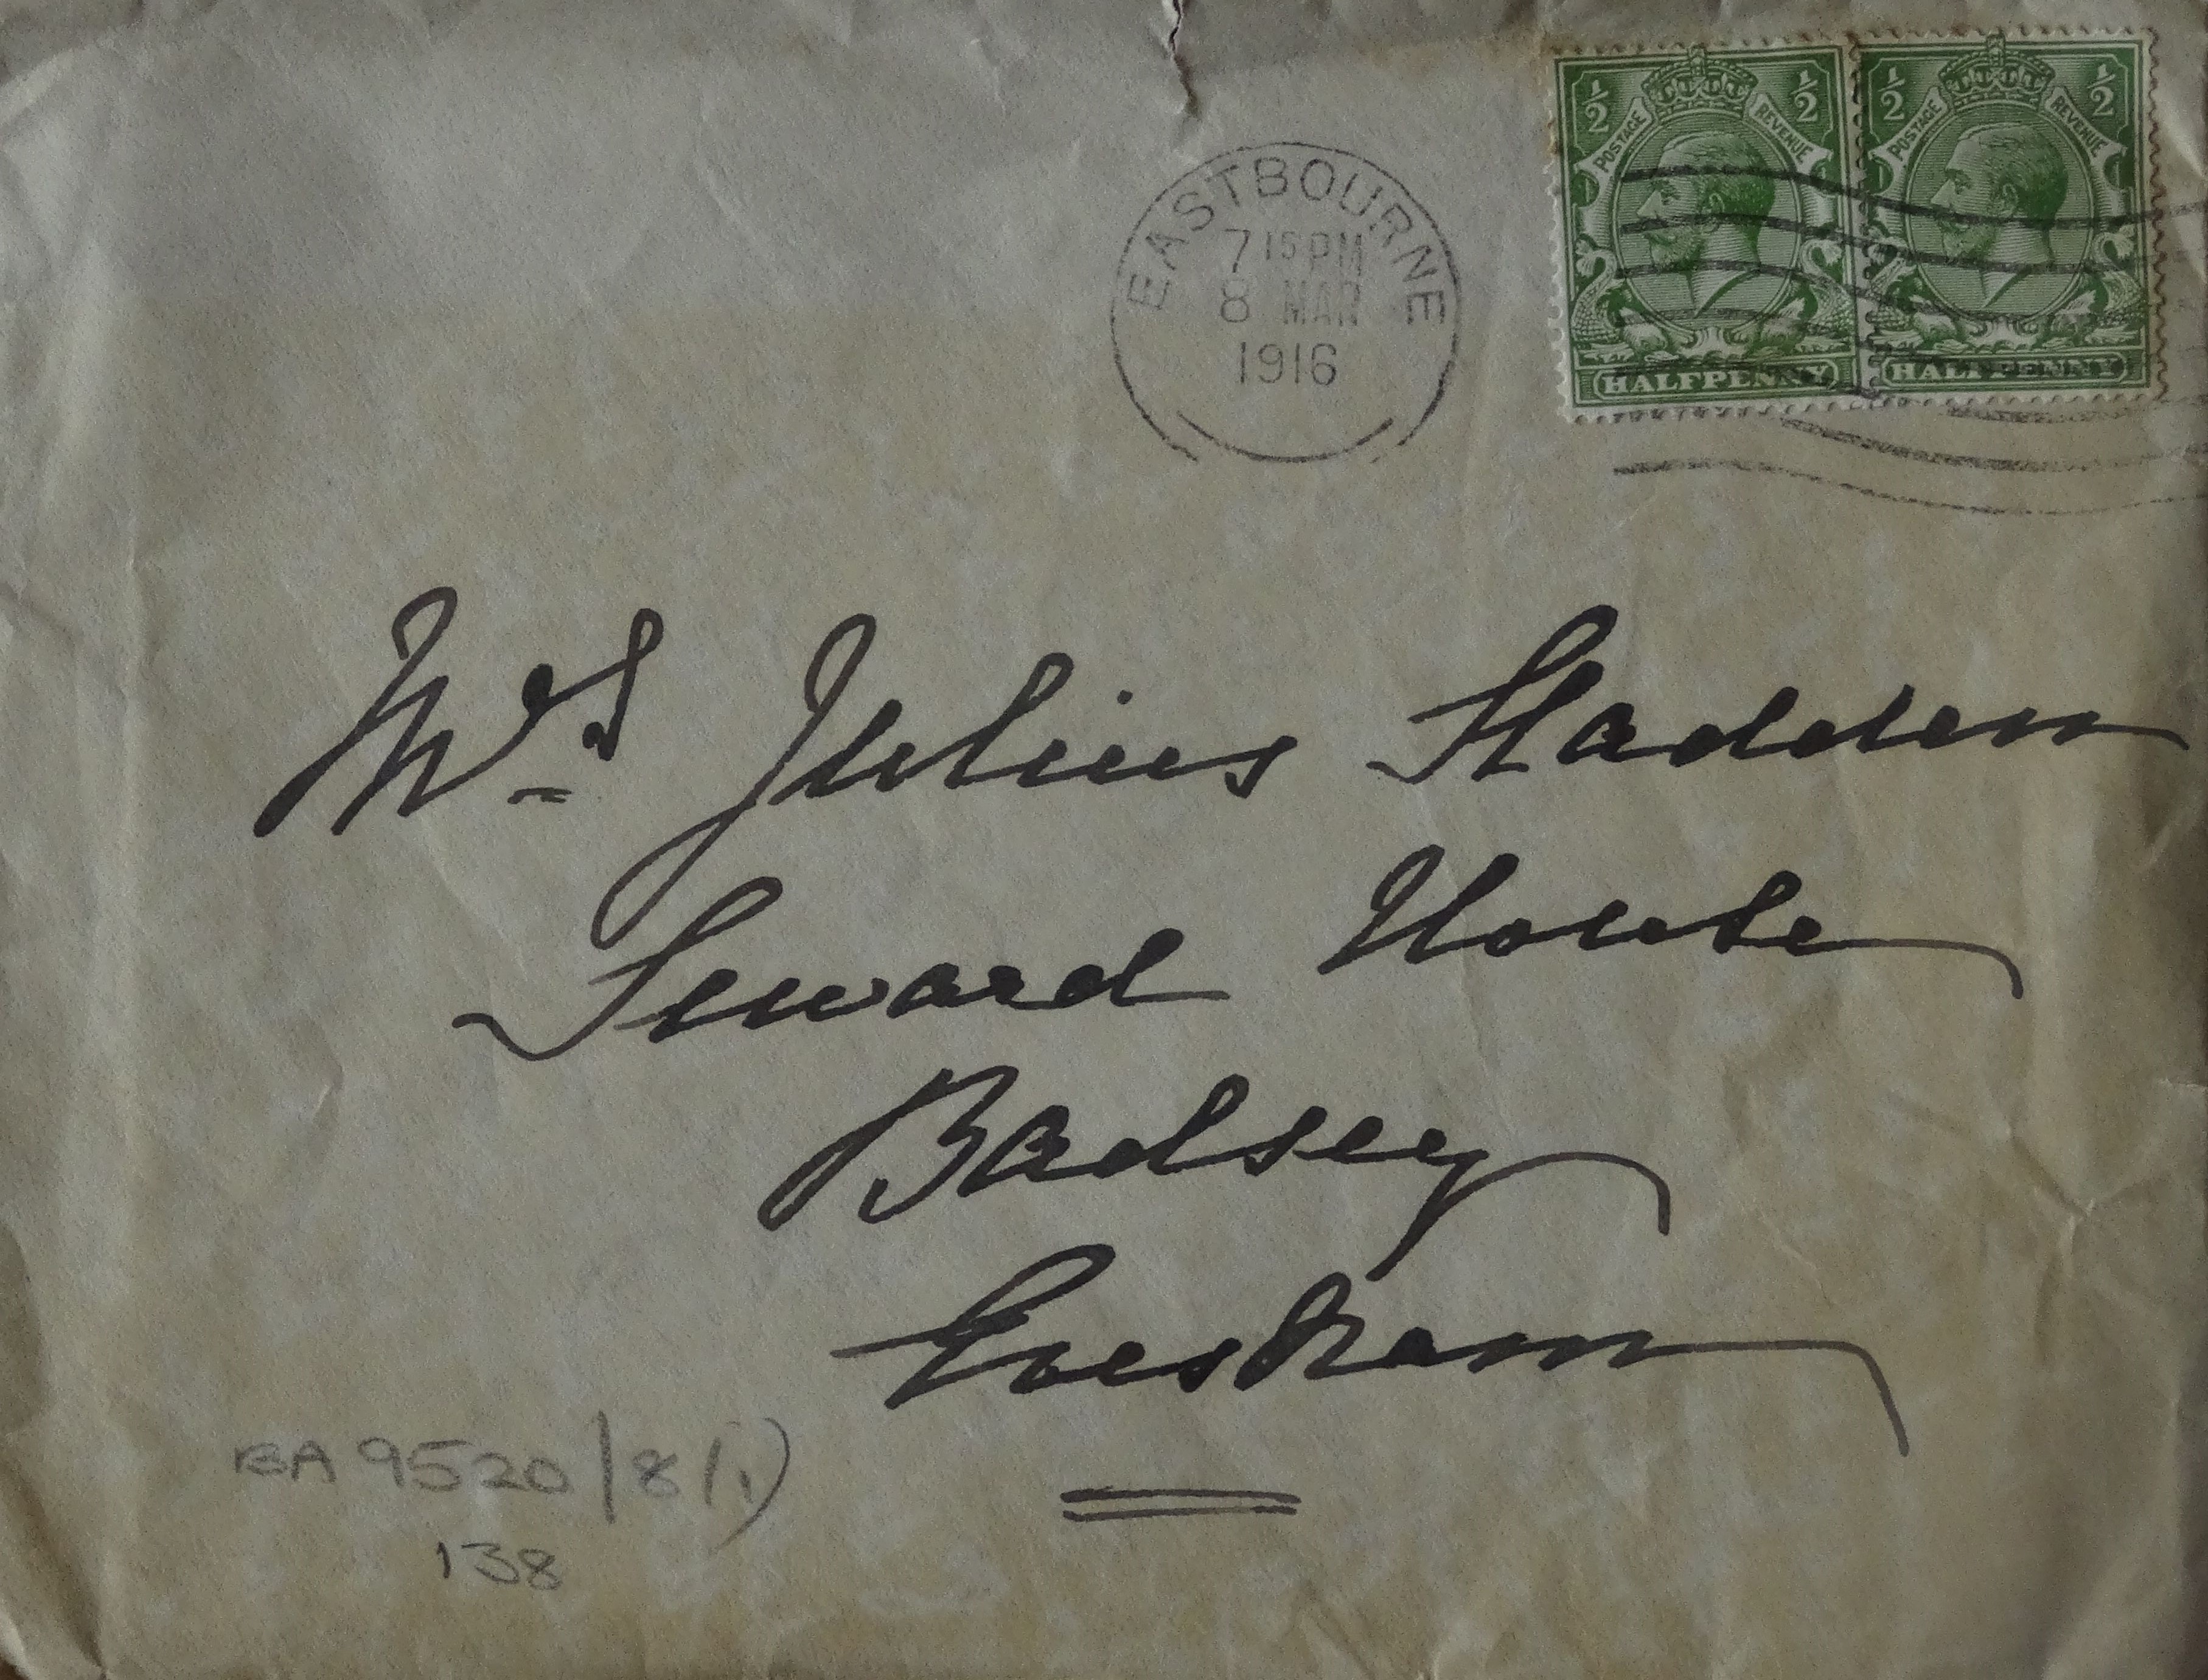 ½ POSTAGE REVENUE ½
HALFPENNY
½ POSTAGE REVENUE ½
HALFPENNY
EASTBOURNE
7 15 PM
8 MAR
1916
Mrs Julius Sladden
Seward House
Badsey
Evesham
BA 9520/8(i)
138